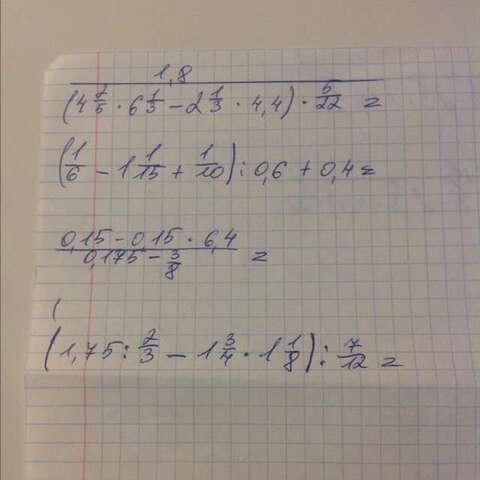 1,8
(4 2/5 · 6 1/3 − 2 1/3 · 4,4) · 5/22 =
(1/6 − 1 1/15 + 1/10) : 0,6 + 0,4 =
0,15 − 0,15 · 6,4
0,175 − 3/8 =
(
(1,75 : 2/3 − 1 3/4 · 1 1/8) : 7/12 =